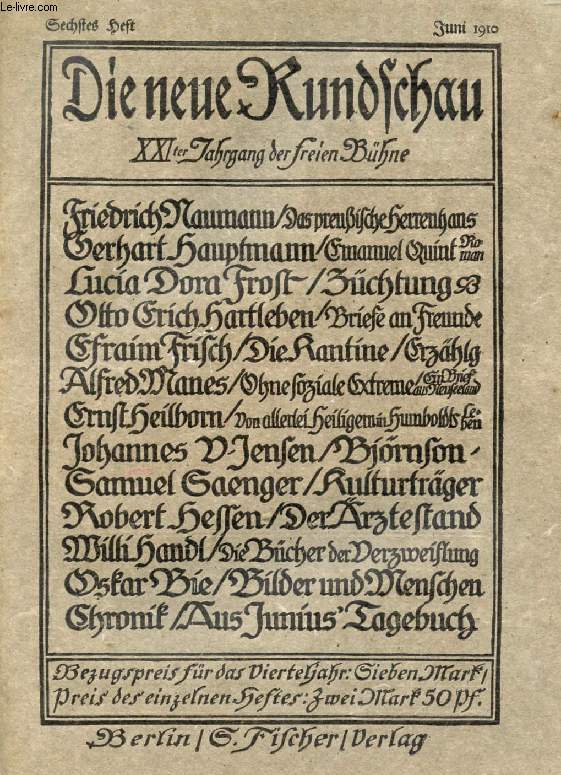 Le-livre.com
Sechstes Heft Juni 1910
Die neue Rundschau
XXIter Jahrgang der freien Bühne
Friedrich Naumann/Das preußische Herrenhaus
Gerhart Hauptmann/Emanuel Quint Roman
Lucia Dora Frost/Züchtung
Otto Erich Hartleben/Briefe an Freunde
Efraim Frisch/Die Kantine/Erzählg
Alfred Manes/Ohne soziale Extreme/Ein Brief aus Neuseeland
Ernst Heilborn/Von allerlei Heiligem in Humboldts Leben
Johannes V. Jensen/Björnson
Samuel Saenger/Kulturträger
Robert Hessen/Der Ärztestand
Willi Handl/Die Bücher der Verzweiflung
Oskar Bie/Bilder und Menschen
Chronik/Aus Junius' Tagebuch
Bezugspreis für das Vierteljahr: Sieben Mark/
Preis des einzelnen Heftes: Zwei Mark 50 Pf.
Berlin/S. Fischer/Verlag